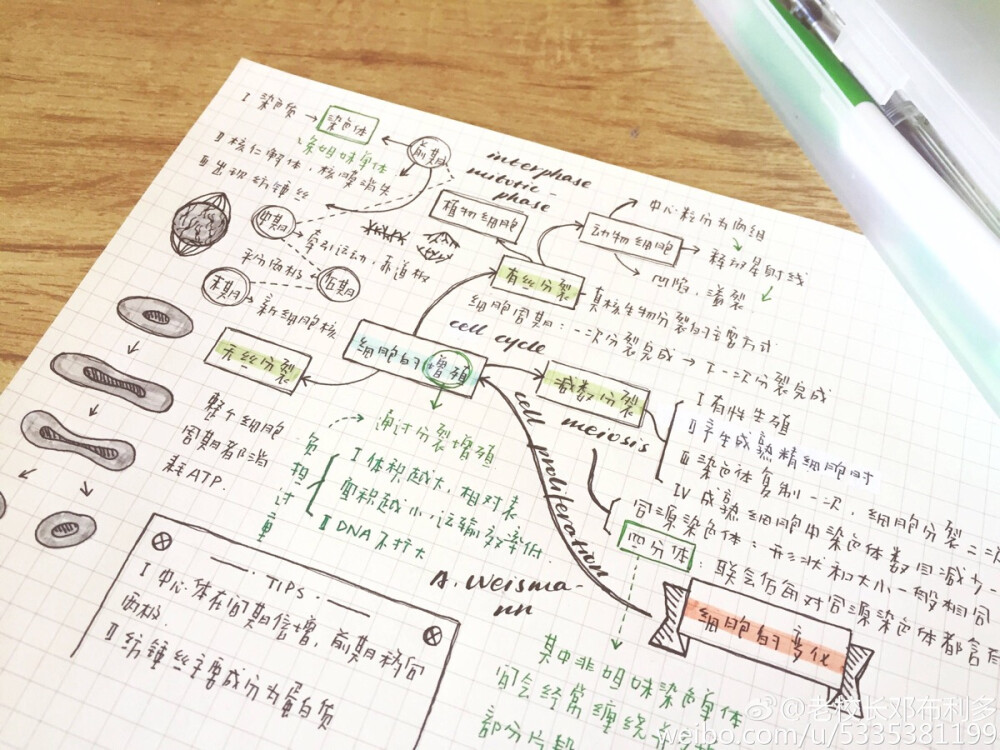 I 染色质 → 染色体
条姐妹单体
前期
II 核仁解体，核膜消失
III 出现纺锤丝
interphase
mitotic-
phase
植物细胞
动物细胞
中心粒分为两组
释放星射线
凹陷，溢裂
中期
牵引运动，赤道板
平分两极
后期
末期
新细胞核
有丝分裂
真核生物分裂的主要方式
细胞周期：一次分裂完成 → 下一次分裂完成
cell cycle
细胞的增殖
无丝分裂
整个细胞
周期都消
耗ATP.
减数分裂
meiosis
I 有性生殖
II 产生成熟精细胞时
III 染色体复制一次，细胞分裂二次
IV 成熟细胞中染色体数目减少一
同源染色体：形状和大小一般相同
四分体
：联会后每对同源染色体都含有
通过分裂增殖
负担过重
I 体积越大，相对表
面积越小，运输效率低
II DNA不扩大
cell proliferation
A. Weisma-
nn
细胞的变化
其中非姐妹染色单体
间会经常缠绕
部分片段
TIPS
I 中心体在间期倍增，前期移向
两极.
II 纺锤丝主要成分为蛋白质
@老校长邓布利多
weibo.com/u/5335381199